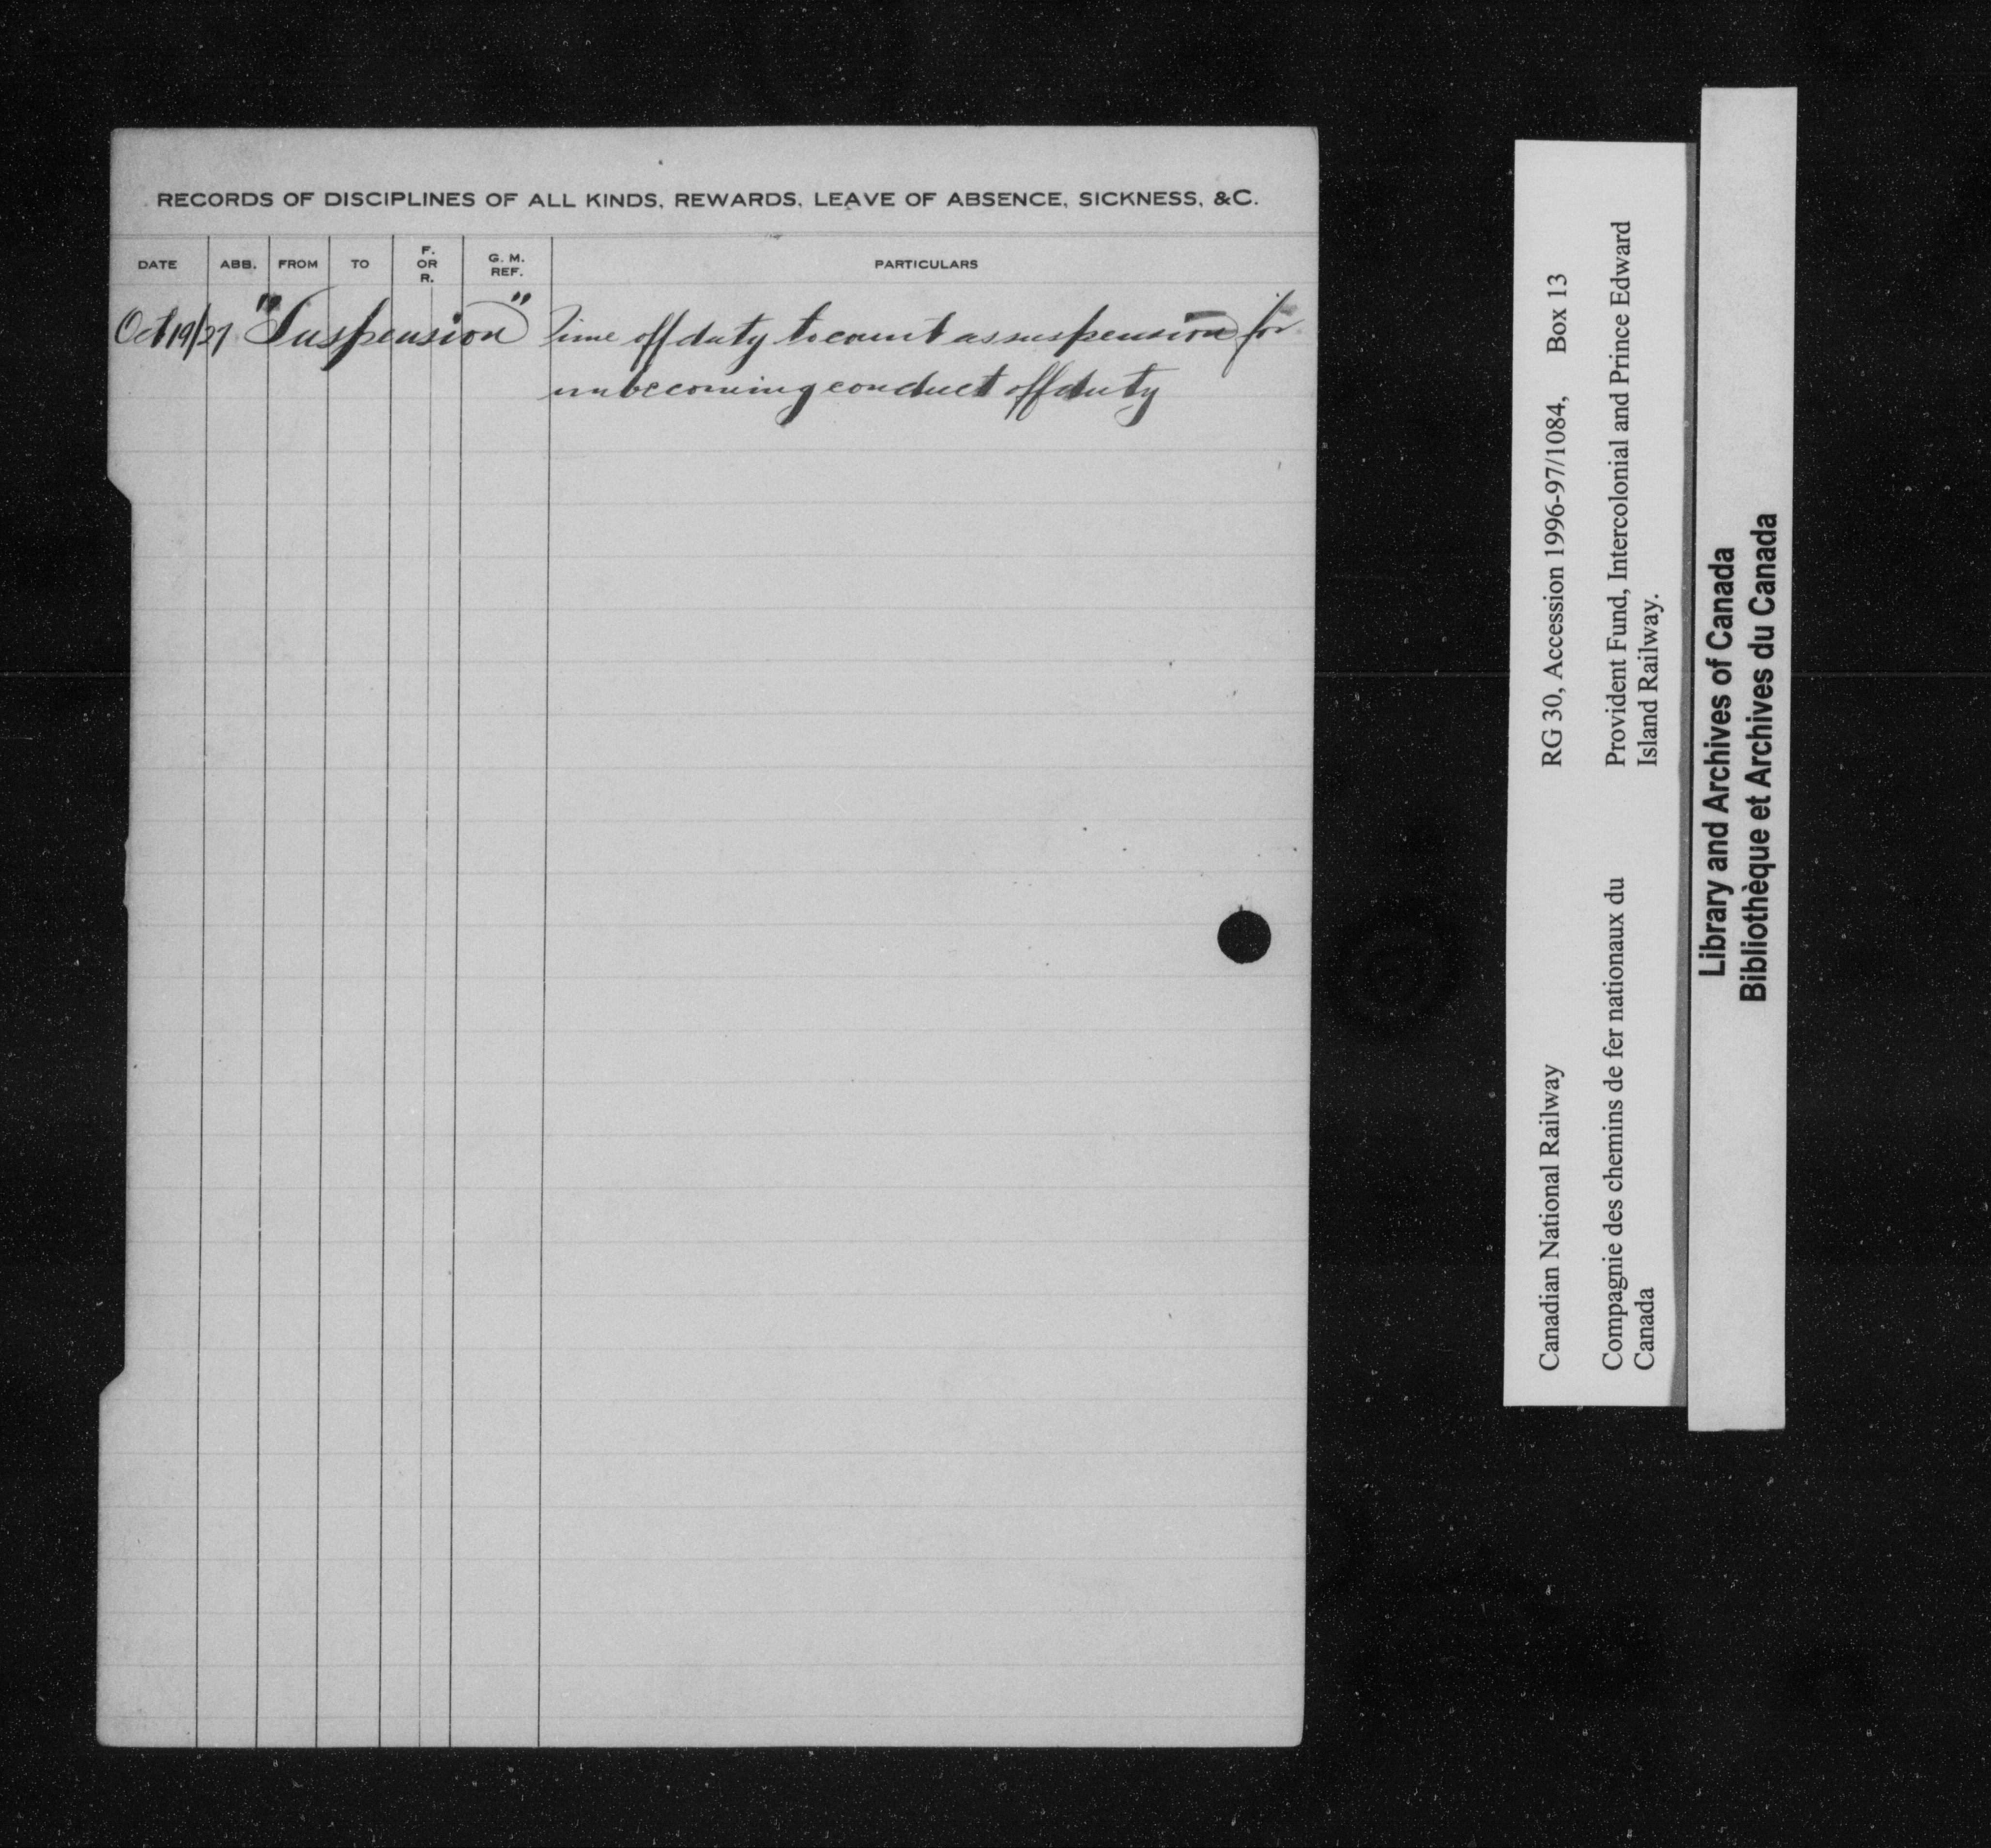 RECORDS OF DISCIPLINES OF ALL KINDS, REWARDS, LEAVE OF ABSENCE, SICKNESS, &C.
DATE ABB. FROM TO F. OR R. G. M. REF. PARTICULARS
Oct 19/27 "Suspension" Time off duty to count as suspension for
unbecoming conduct off duty
Canadian National Railway RG 30, Accession 1996-97/1084, Box 13
Compagnie des chemins de fer nationaux du Provident Fund, Intercolonial and Prince Edward
Canada Island Railway.
Library and Archives of Canada
Bibliothèque et Archives du Canada